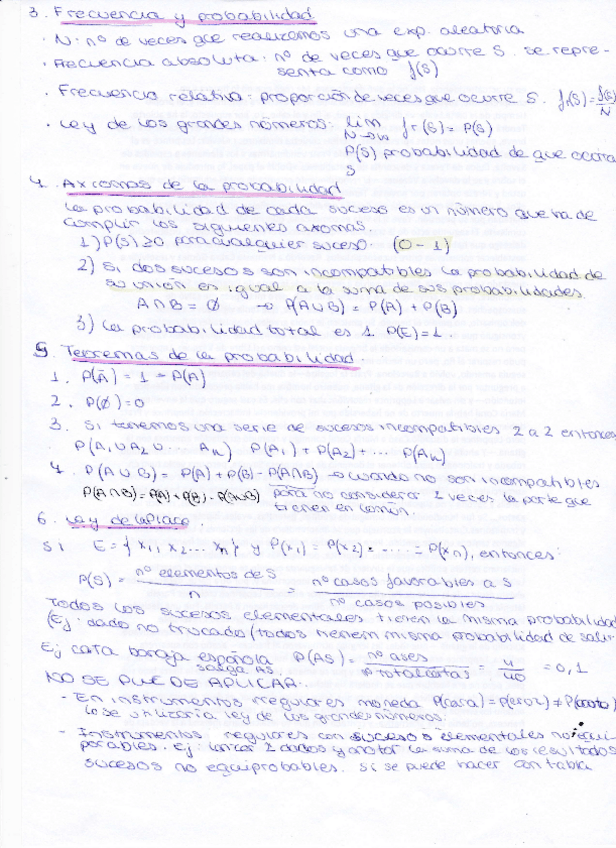 3. Frecuencia y probabilidad
· N: nº de veces que realizamos una exp. aleatoria
· Frecuencia absoluta: nº de veces que ocurre S. se repre-
senta como f(S)
· Frecuencia relativa: proporción de veces que ocurre S. fr(S) = f(S)/N
· Ley de los grandes números: lim N→∞ fr(S) = P(S)
P(S) probabilidad de que ocurra
S
4. Axiomas de la probabilidad
La probabilidad de cada suceso es un número que ha de
cumplir los siguientes axiomas.
1) P(S) ≥ 0 para cualquier suceso. (0 - 1)
2) Si dos sucesos son incompatibles la probabilidad de
su unión es igual a la suma de sus probabilidades.
A∩B = ∅ → P(A∪B) = P(A) + P(B)
3) La probabilidad total es 1 P(E)=1.
5. Teoremas de la probabilidad.
1. P(Ā) = 1 - P(A)
2. P(∅)=0
3. Si tenemos una serie de sucesos incompatibles 2 a 2 entonces
P(A₁∪A₂∪... Aₙ) P(A₁) + P(A₂) + ... P(Aₙ)
4. P(A∪B) = P(A) + P(B) - P(A∩B) → cuando no son incompatibles
P(A∩B) = P(A) + P(B) - P(A∪B) para no considerar 2 veces la parte que
tienen en común.
6. Ley de Laplace.
Si E = {x₁, x₂ ... xₙ} y P(x₁) = P(x₂) = ..... = P(xₙ), entonces:
P(S) = nº elementos de S / n = nº casos favorables a S / nº casos posibles
Todos los sucesos elementales tienen la misma probabilidad
(Ej: dado no trucado (todos tienen misma probabilidad de salir
Ej carta baraja española salga AS P(AS) = nº ases / nº total cartas = 4/40 = 0,1
NO SE PUEDE APLICAR:
- En instrumentos irregulares moneda P(cara) = P(cruz) ≠ P(canto)
se utilizaría ley de los grandes números.
- Instrumentos regulares con sucesos elementales no equi-
probables. Ej: lanzar 2 dados y anotar la suma de los resultados
sucesos no equiprobables. Si se puede hacer con tabla